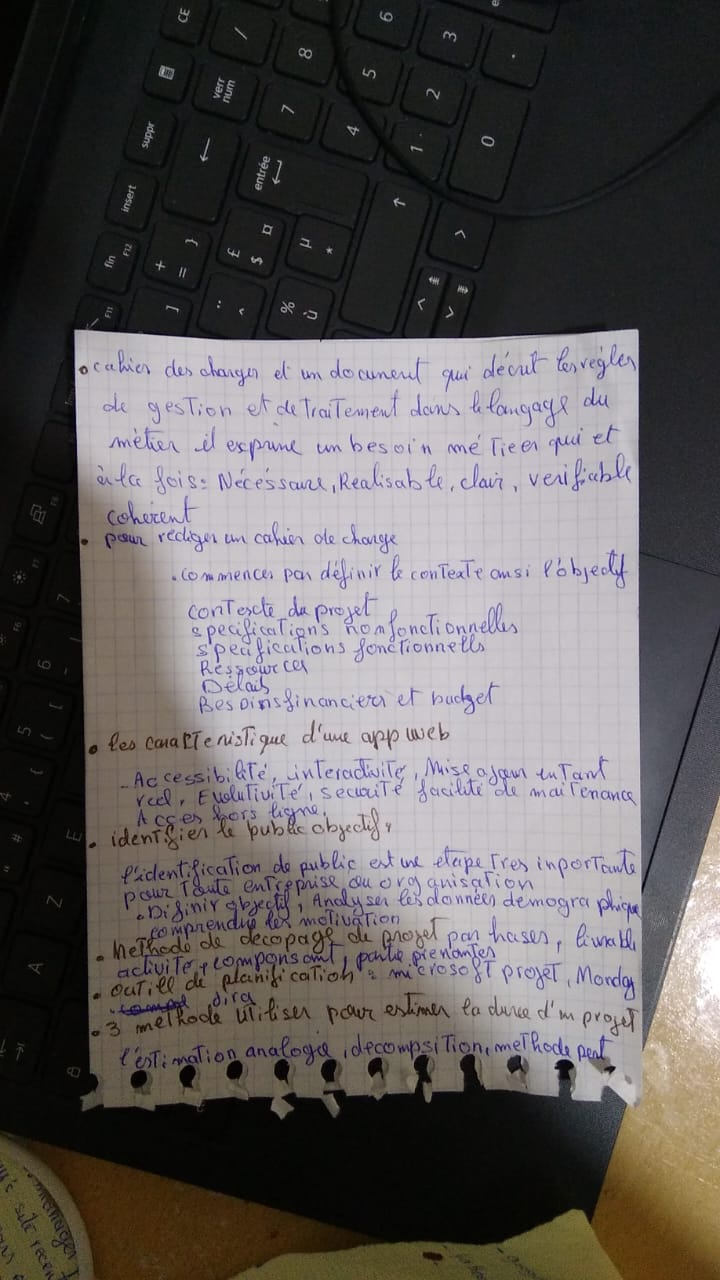 • cahier des charges et un document qui décrit les règles
de gestion et de traitement dans le langage du
métier il exprime un besoin métieer qui et
à la fois: Nécéssaire, Réalisable, clair, verifiable
cohérent
• pour rédiger un cahier de charge
. commencer par définir le contexte ansi l'objectif
contexte du projet
specifications non fonctionnelles
spécifications fonctionnells
Ressources
Délais
Besoins financiers et budget
• les caracteristique d'une app web
- Accessibilité, interactivité, Mise a jour en tant
reel, Evolutivité, securité facilité de maitenance
Acces hors ligne.
• identifier le public objectif,
l'identification de public est une etape tres inportante
pour toute entreprise ou organisation
. Difinir objectif, Analyser les données démographique
- comprendre les motivation
• Methode de decopage de projet par hases, livrable
activite, componsant, partie prenantes
• outill de planification : microsoft projet, Monday
dira
• 3 methode utiliser pour estimer la duree d'un projet
l'estimation analogie, decompsition, methode pert
fin
F12
F11
insert
suppr
CE
verr
num
entrée
/
7
8
4
5
6
1
2
3
0
.
+
=
}
]
£
$
¤
µ
*
%
ù
^
>
<
F6
F5
7
6
-
5
(
[
4
'
{
#
E
Z
A
8